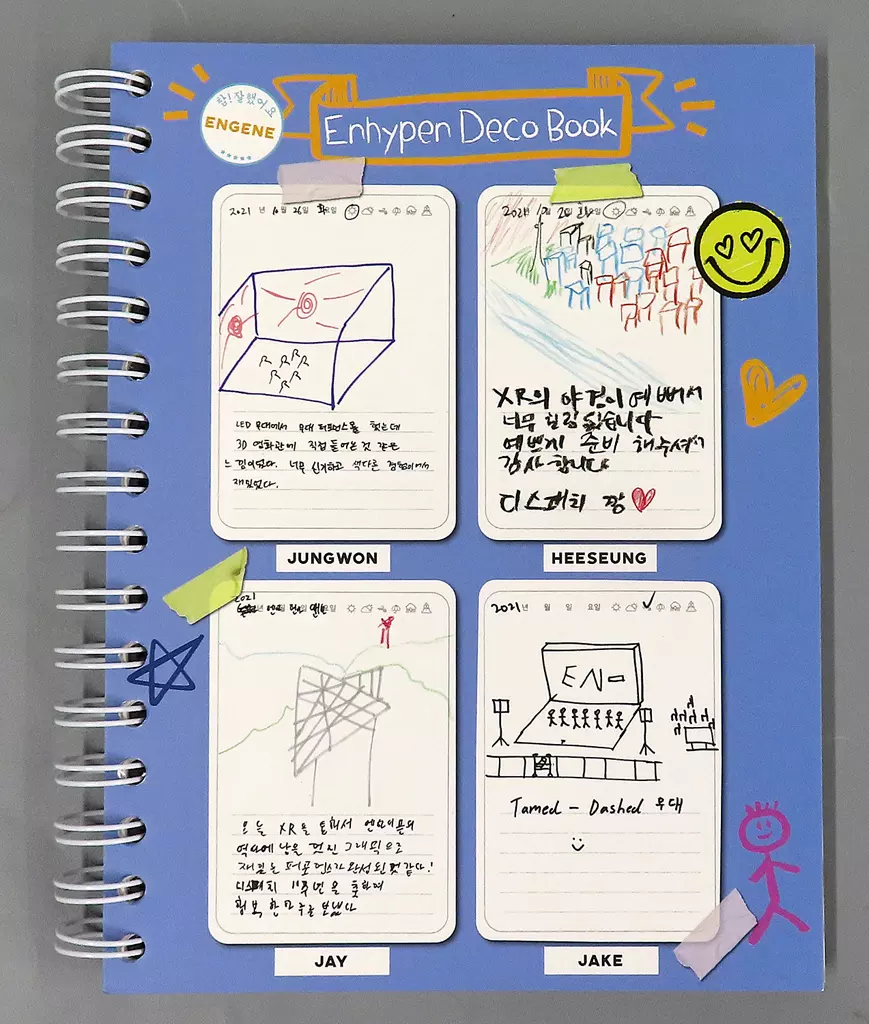 참! 잘했어요
ENGENE
Enhypen Deco Book
2021 년 10 월 26 일 화요일
LED 무대에서 무대 퍼포먼스를 했는데
3D 영화관에 직접 들어온 것 같은
느낌이었다. 너무 신기하고 색다른 경험이어서
재밌었다.
JUNGWON
2021 요일
XR의 야경이 예뻐서
너무 힐링 됐습니다
예쁘게 준비 해주셔서
감사합니다
디스패치 짱
HEESEUNG
2021
오늘 XR을 통해서 엔하이픈의
역사에 남을 멋진 그래픽으로
재밌는 퍼포먼스가 완성된 것 같다!
디스패치 11주년을 축하며
행복 한 보냈다
JAY
2021 월 일 요일
EN-
Tamed - Dashed 무대
JAKE